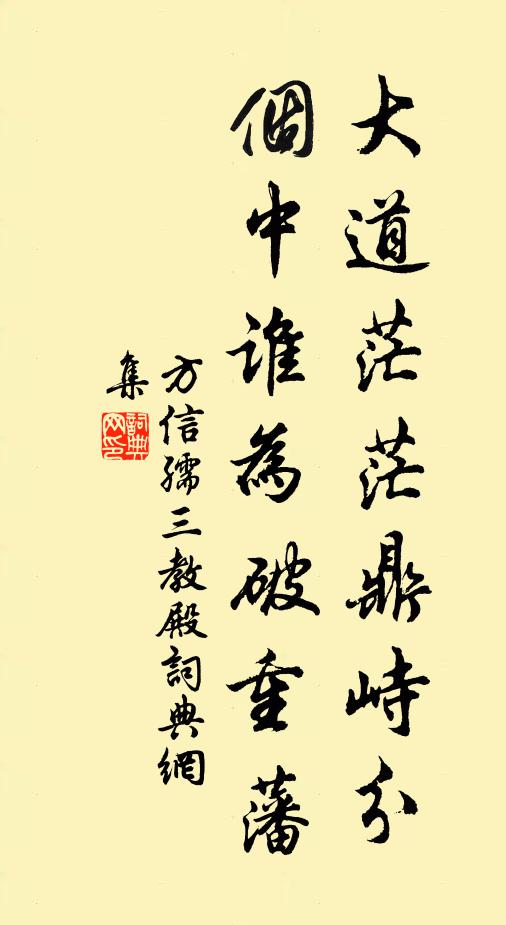 大道茫茫鼎峙分
個中誰為破重藩
方信孺三教殿詞典網
集
詞典
网印